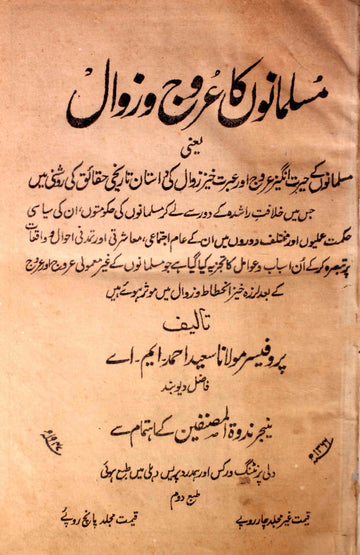 مسلمانوں کا عروج و زوال
یعنی
مسلمانوں کے حیرت انگیز عروج اور عبرت خیز زوال کی داستان تاریخی حقائق کی روشنی میں
جس میں خلافتِ راشدہ کے دور سے لے کر مسلمانوں کی حکومتوں، ان کی سیاسی
حکمت عملیوں اور مختلف دوروں میں ان کے عام اجتماعی، معاشرتی اور تمدنی احوال و واقعات
پر تبصرہ کر کے اُن اسباب و عوامل کا تجزیہ کیا گیا ہے جو مسلمانوں کے غیر معمولی عروج اور عروج
کے بعد لرزہ خیز انحطاط و زوال میں موثر ہوئے ہیں
تالیف
پروفیسر مولانا سعید احمد۔ ایم۔ اے
فاضل دیوبند
منیجر ندوۃ المصنفین کے اہتمام سے
دلی پرنٹنگ ورکس اور ہمدرد پریس دہلی میں طبع ہوئی
طبع دوم
قیمت غیر مجلد چار روپے
قیمت مجلد پانچ روپے